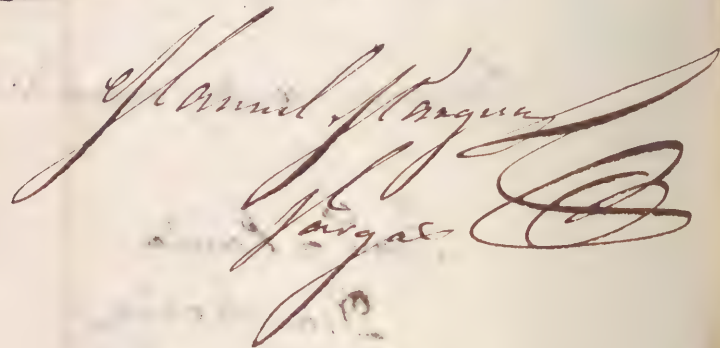 Manuel Marquez
Vargas